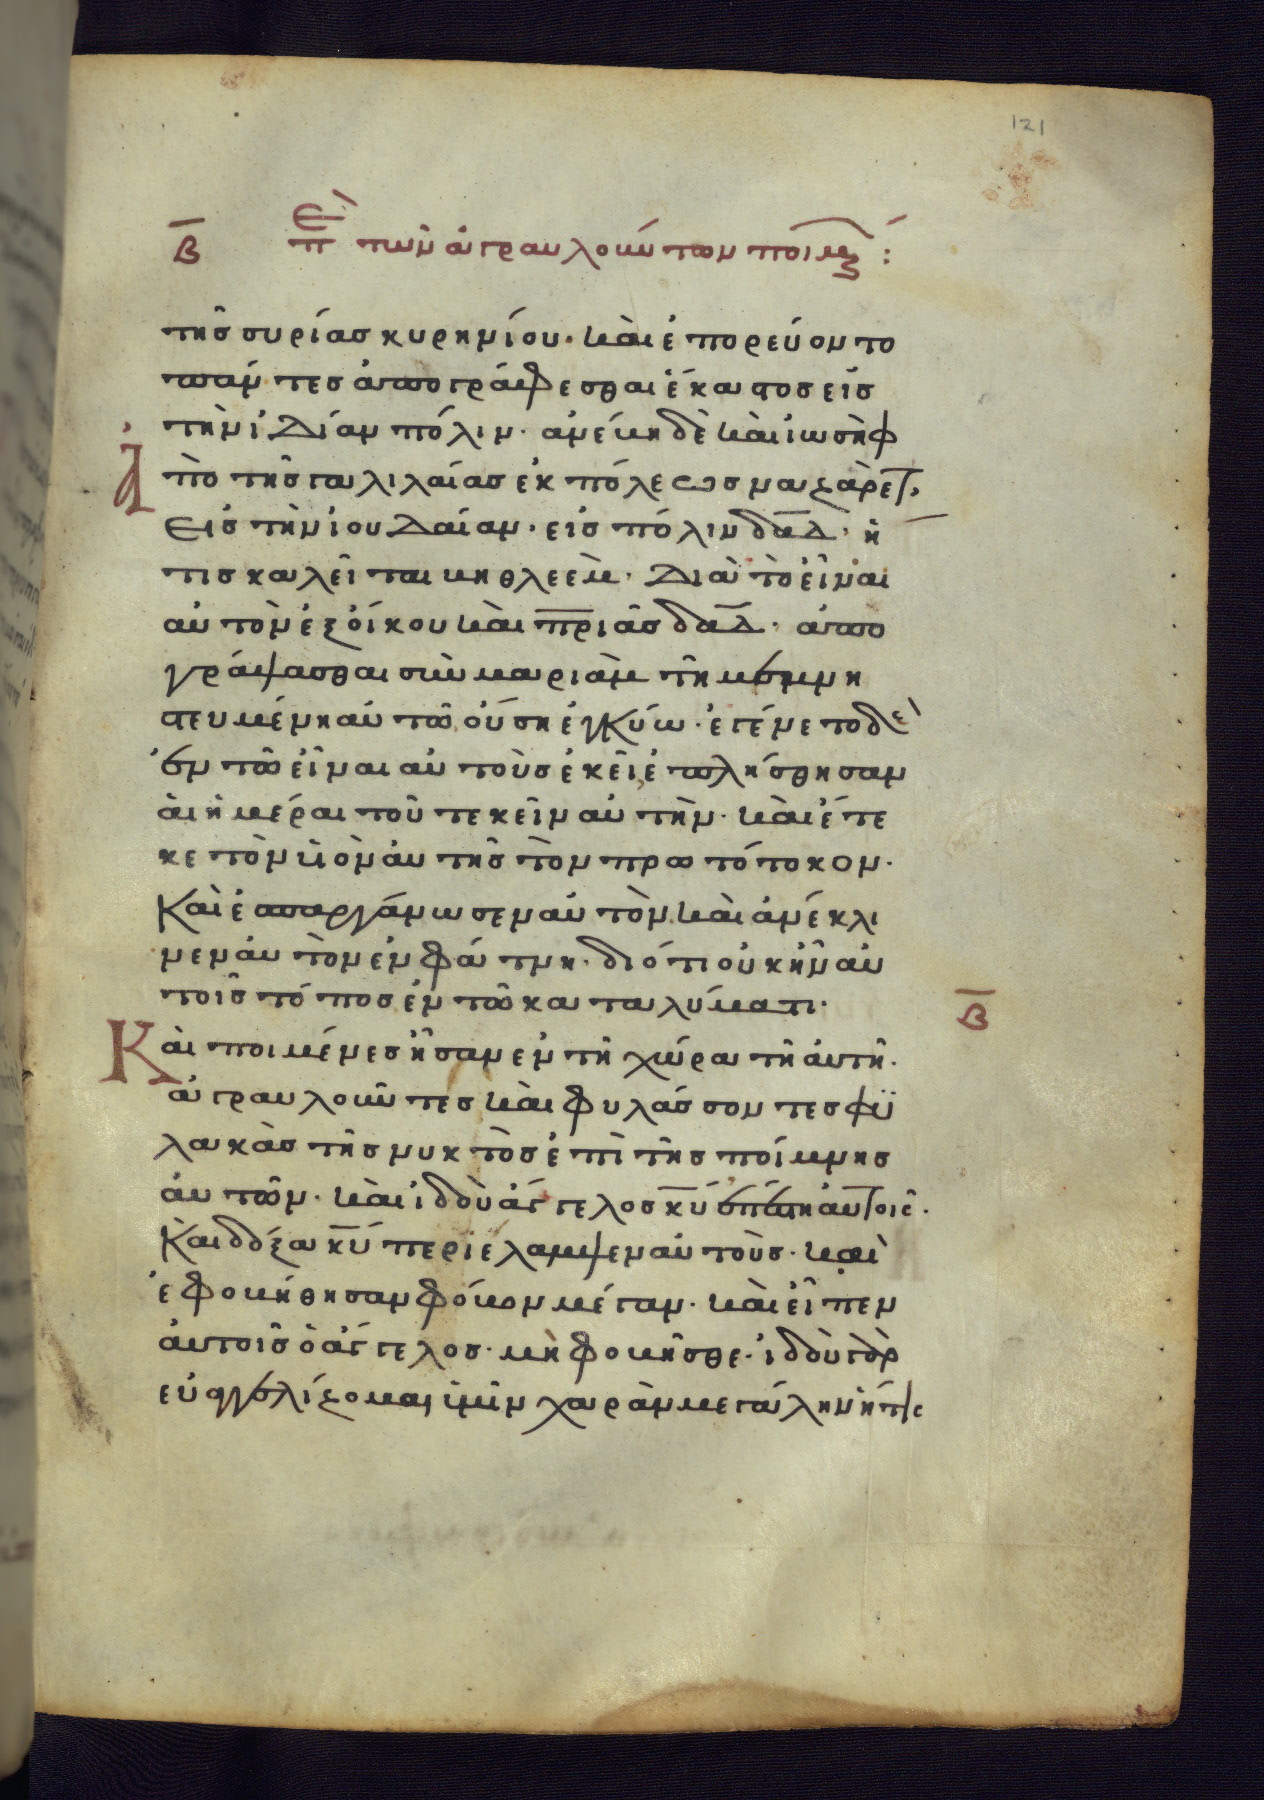 121
β̅ Ἐπὶ τῶν ἀγραυλούντων ποιμέ(νων):
τῆς συρίας κυρηνίου· καὶ ἐπορεύοντο
πάντες ἀπογράφεσθαι ἕκαστος εἰς
τὴν ἰδίαν πόλιν· ἀνέβη δὲ καὶ ἰωσὴφ
ἀπὸ τῆς γαλιλαίας ἐκ πόλεως ναζαρὲτ,
εἰς τὴν ἰουδαίαν· εἰς πόλιν δα̅δ̅· ἥ
τις καλεῖται βηθλεέμ· διὰ τὸ εἶναι
αὐτὸν ἐξ οἴκου καὶ πρ̅ιᾶς δα̅δ̅· ἀπο
γράψασθαι σὺν μαριὰμ τῆ μεμνη
στευμένη αὐτῶ οὔση ἐγκύω· ἐγένετο δὲ
ἐν τῶ εἶναι αὐτοὺς ἐκεῖ ἐπλήσθησαν
αἱ ἡμέραι τοῦ τεκεῖν αὐτὴν· καὶ ἔτε
κε τὸν υἱὸν αὐτῆς τὸν πρωτότοκον·
Καὶ ἐσπαργάνωσεν αὐτὸν, καὶ ἀνέκλι
νεν αὐτὸν ἐν φάτνη· διότι οὐκ ἦν αὐ
τοῖς τόπος ἐν τῶ καταλύματι·
β̅
Καὶ ποιμένες ἦσαν ἐν τῆ χώρα τῆ αὐτῆ·
ἀγραυλοῦντες καὶ φυλάσσοντες φϋ
λακὰς τῆς νυκτὸς ἐπὶ τῆς ποίμνης
αὐτῶν· καὶ ἰδοὺ ἄγγελος κ̅υ̅ ἐπέστη αὐτοῖς·
Καὶ δόξα κ̅υ̅ περιέλαμψεν αὐτοὺς· καὶ
ἐφοβήθησαν φόβον μέγαν· καὶ εἶπεν
αὐτοῖς ὁ ἄγγελος· μὴ φοβῆσθε· ἰδοὺ γὰρ
εὐαγγελίζομαι ὑμῖν χαρὰν μεγάλην ἥτις